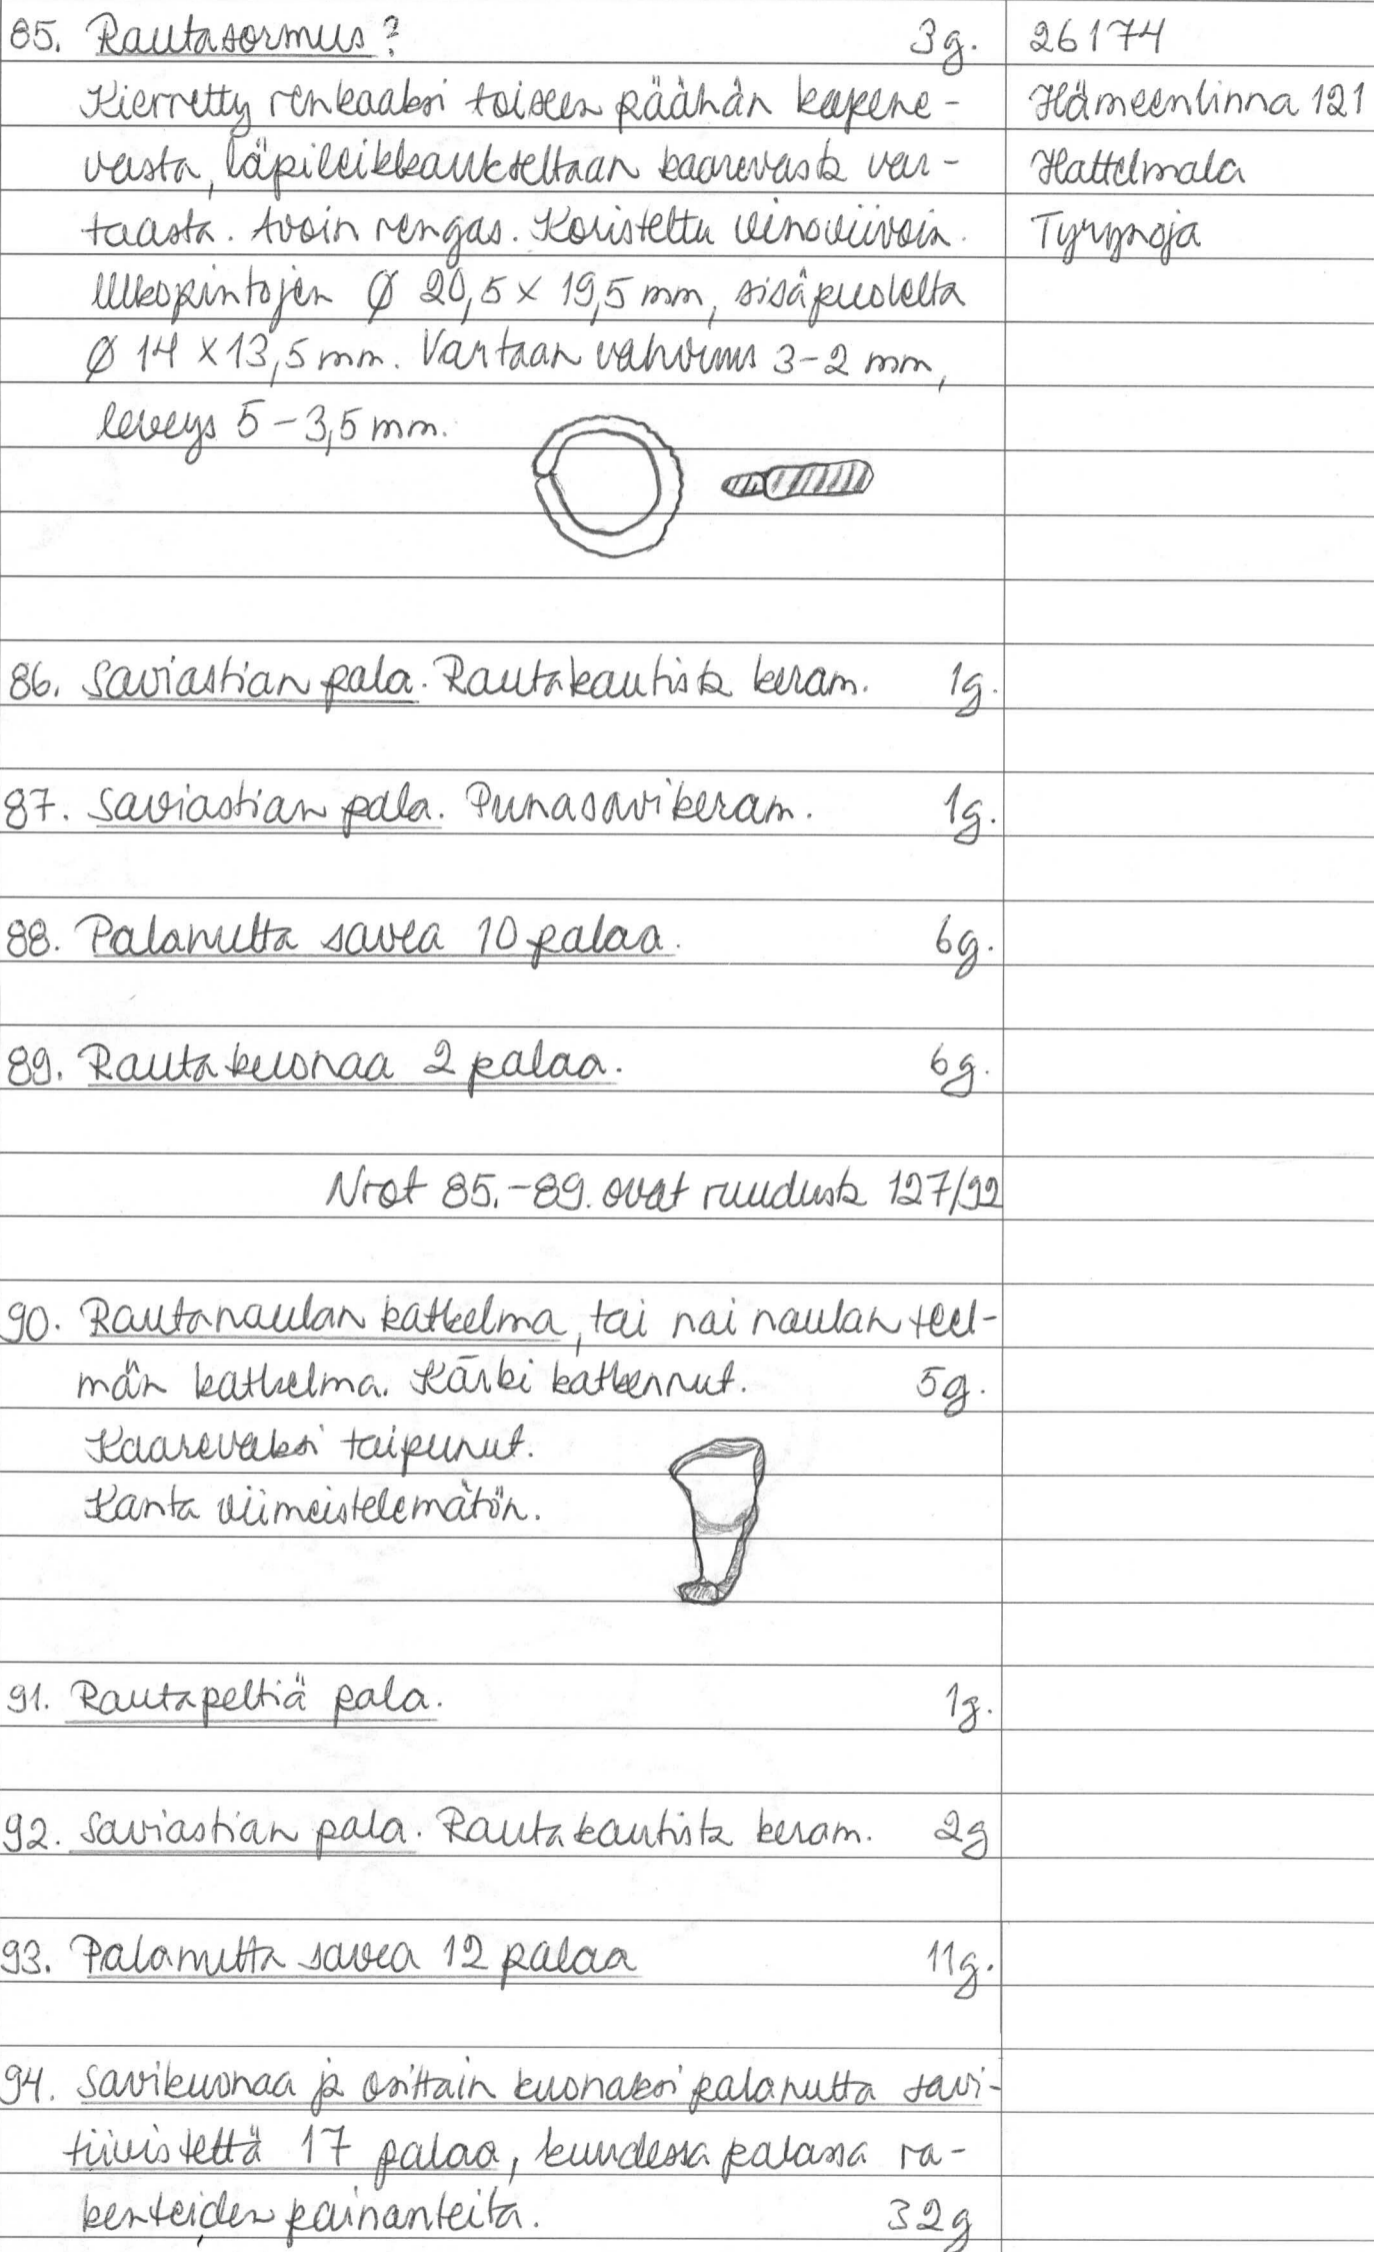 85. Rautasormus? 3g.
Kierretty renkaaksi toiseen päähän kapene-
vasta, läpileikkaukseltaan kaarevasta var-
taasta. Avoin rengas. Koristeltu vinoviivoin.
Ulkopintojen Ø 20,5 x 19,5 mm, sisäpuolelta
Ø 14 x 13,5 mm. Vartaan vahvuus 3-2 mm,
leveys 5-3,5 mm.
26174
Hämeenlinna 121
Hattelmala
Tyrynoja
86. Saviastian pala. Rautakautista keram. 1g.
87. Saviastian pala. Punasavikeram. 1g.
88. Palanutta savea 10 palaa. 6g.
89. Rautakuonaa 2 palaa. 6g.
Nrot 85.-89. ovat ruudusta 127/92
90. Rautanaulan katkelma, tai nai naulan teel-
män katkelma. Kärki katkennut. 5g.
Kaarevaksi taipunut.
Kanta viimeistelemätön.
91. Rautapeltiä pala. 1g.
92. Saviastian pala. Rautakautista keram. 2g
93. Palanutta savea 12 palaa 11g.
94. Savikuonaa ja osittain kuonaksi palanutta savi-
tiivistettä 17 palaa, kuudessa palassa ra-
kenteiden painanteita. 32g